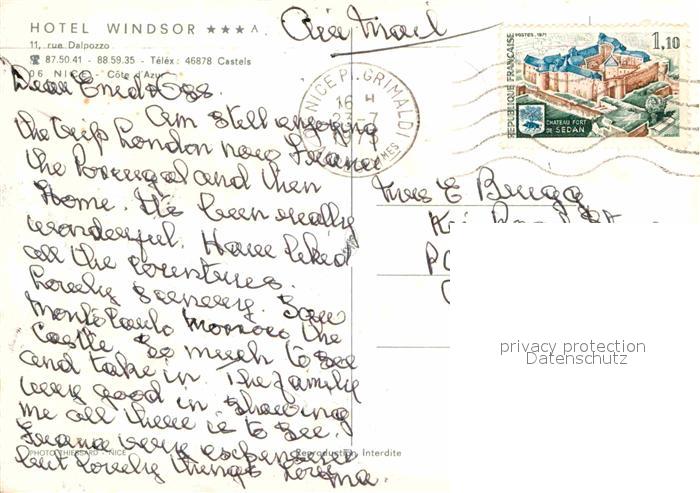 HOTEL WINDSOR ★★★ A
11, rue Dalpozzo
☎ 87.50.41 - 88.59.35 - Téléx: 46878 Castels
06 NICE - Côte d'Azur
Air Mail
NICE PL. GRIMALDI
16 H
23-7
POSTES 1971
1,10
REPUBLIQUE FRANÇAISE
CHATEAU FORT
DE SEDAN
Dear Enid
Am still enjoying
the trip London now
the Portugal and then
Home. It's been really
wonderful. Have liked
all the countries.
Lovely scenery. Saw
Monte Carlo the
Castle so much to see
and take in. The family
very good in showing
me all there is to see.
very expensive
but lovely things
Mrs E Bugg
PHOTO THIERSARD - NICE
Reproduction Interdite
privacy protection
Datenschutz